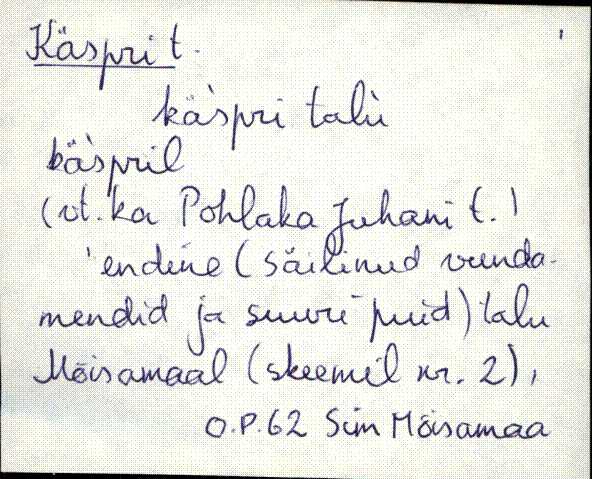 Käspri t.
kä`spri talù
kä`spril
(vt. ka Pohlaka Juhani t.)
'endine (säilinud vunda-
mendid ja suuri puid) talu
Mõisamaal (skeemil nr. 2),
O.P.62 Sim Mõisamaa